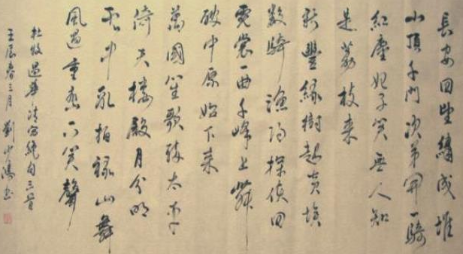 長安回望繡成堆
山頂千門次第開一騎
紅塵妃子笑無人知
是荔枝來
新豐綠樹起黃埃
數騎漁陽探使回
霓裳一曲千峰上舞
破中原始下來
萬國笙歌醉太平
倚天樓殿月分明
雲中亂拍祿山舞
風過重巒下笑聲
杜牧過華清宮絕句三首
壬辰春三月劉小書